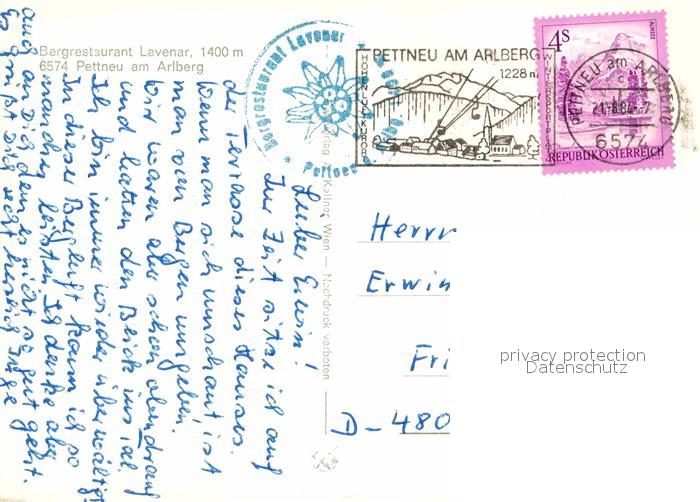 Bergrestaurant Lavenar, 1400 m
6574 Pettneu am Arlberg
Bergrestaurant Lavenar
Pettneu
PETTNEU AM ARLBERG
1228 m
HÖHENLUFTKURORT
WINTERSPORTPLATZ
4S
ALMSEE
REPUBLIK ÖSTERREICH
PETTNEU am ARLBERG
21.-8.8
-7
6574
Verlag
Kellner Wien — Nachdruck verboten
Lieber Erwin!
Zur Zeit sitze ich auf
der Terrasse dieses Hauses.
Wenn man sich umschaut, ist
man von Bergen umgeben.
Wir waren aber schon obendrauf
und hatten den Blick ins Tal.
Ich bin immer wieder überwältigt
In dieser Bergluft kann ich so
manches leisten. Ich denke aber
auch an Dich dem es nicht so gut geht.
Es grüßt Dich recht herzlich Inge
Herrn
Erwin
Fri
D-480
privacy protection
Datenschutz